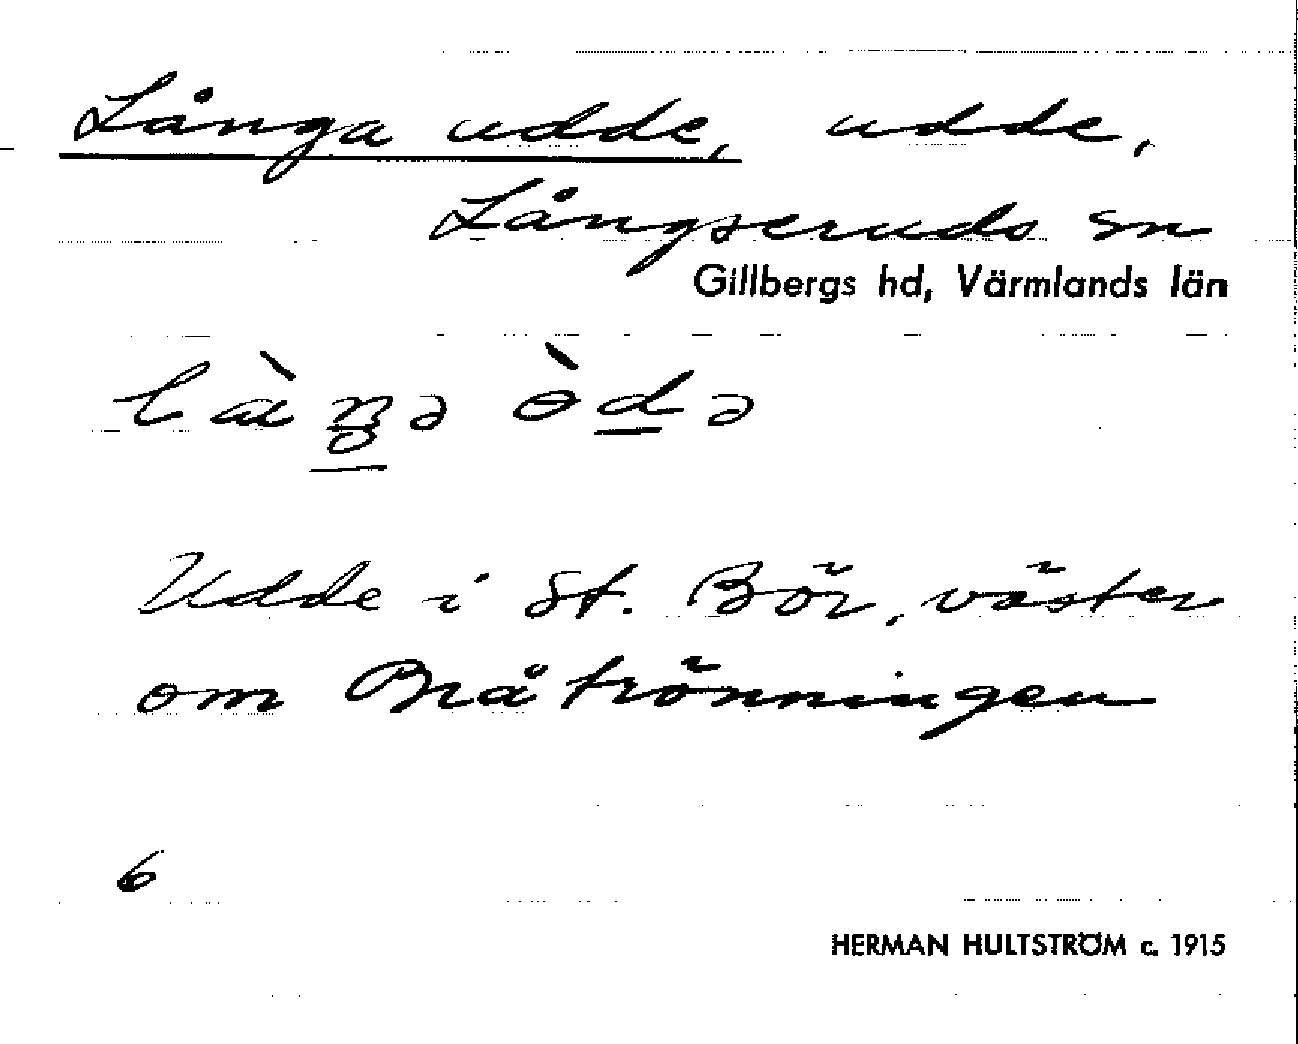 Långa udde, udde,
Långseruds sn
Gillbergs hd, Värmlands län
Udde i St. Bör, väster
om Bråtrönningen
6
HERMAN HULTSTRÖM c. 1915